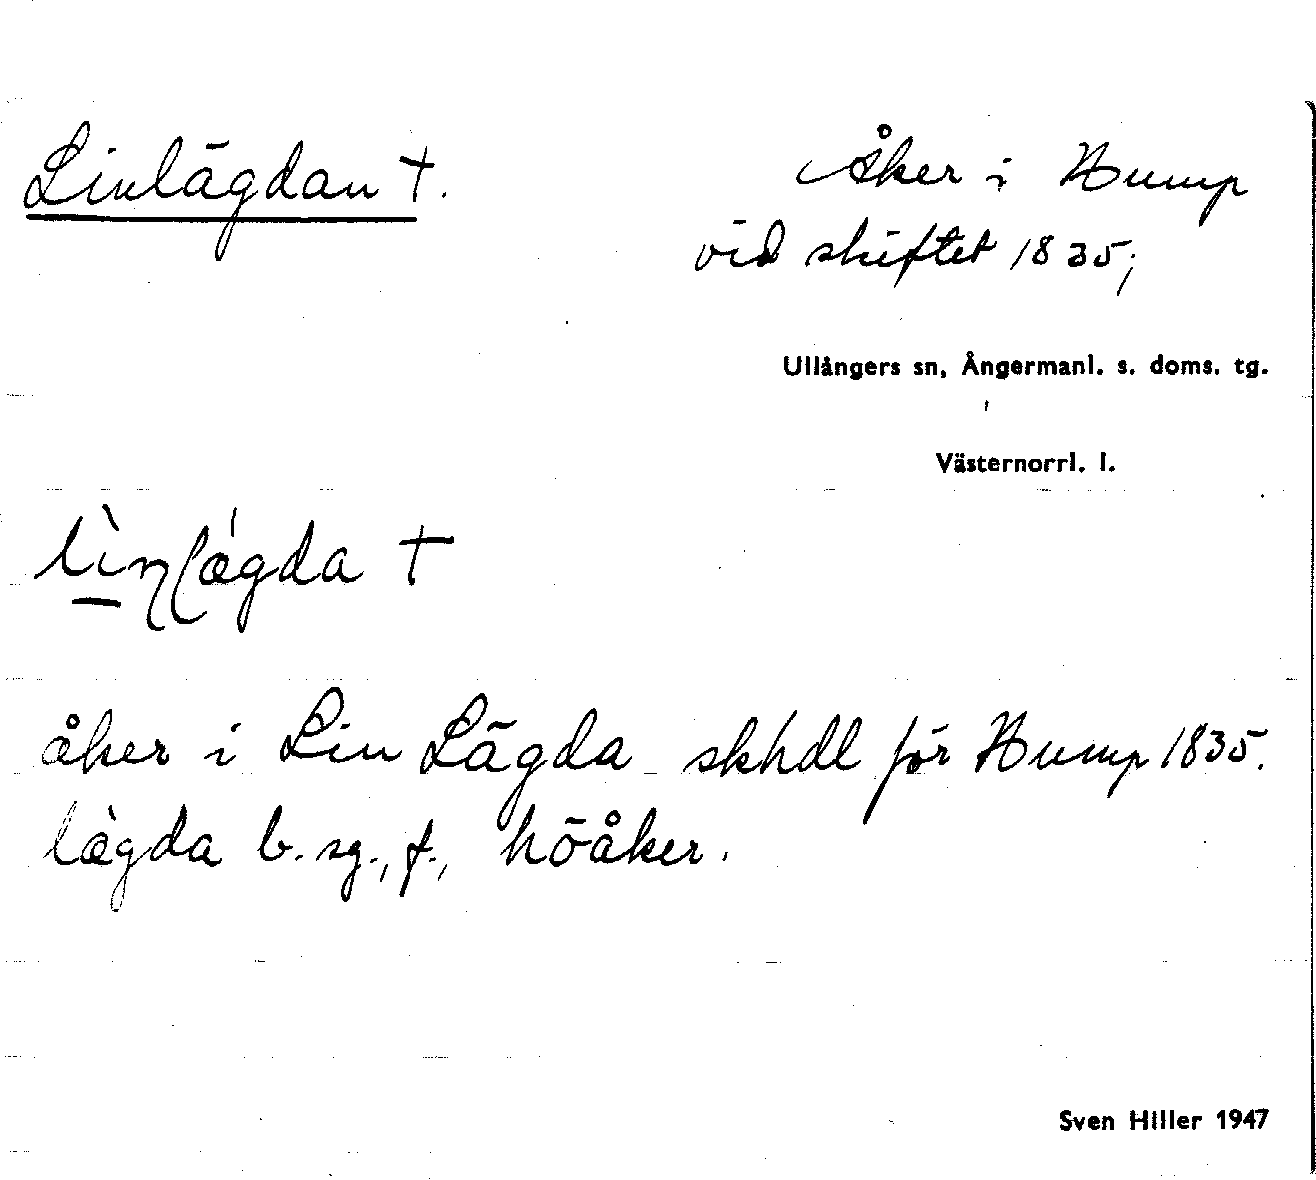 Linlägdan †.
Åker i Hump
vid skiftet 1835;
Ullångers sn, Ångermanl. s. doms. tg.
Västernorrl. l.
lìn̠lægda †
åker i Lin Lägda skhdl för Hump 1835.
lægda b. sg., f., höåker.
Sven Hiller 1947